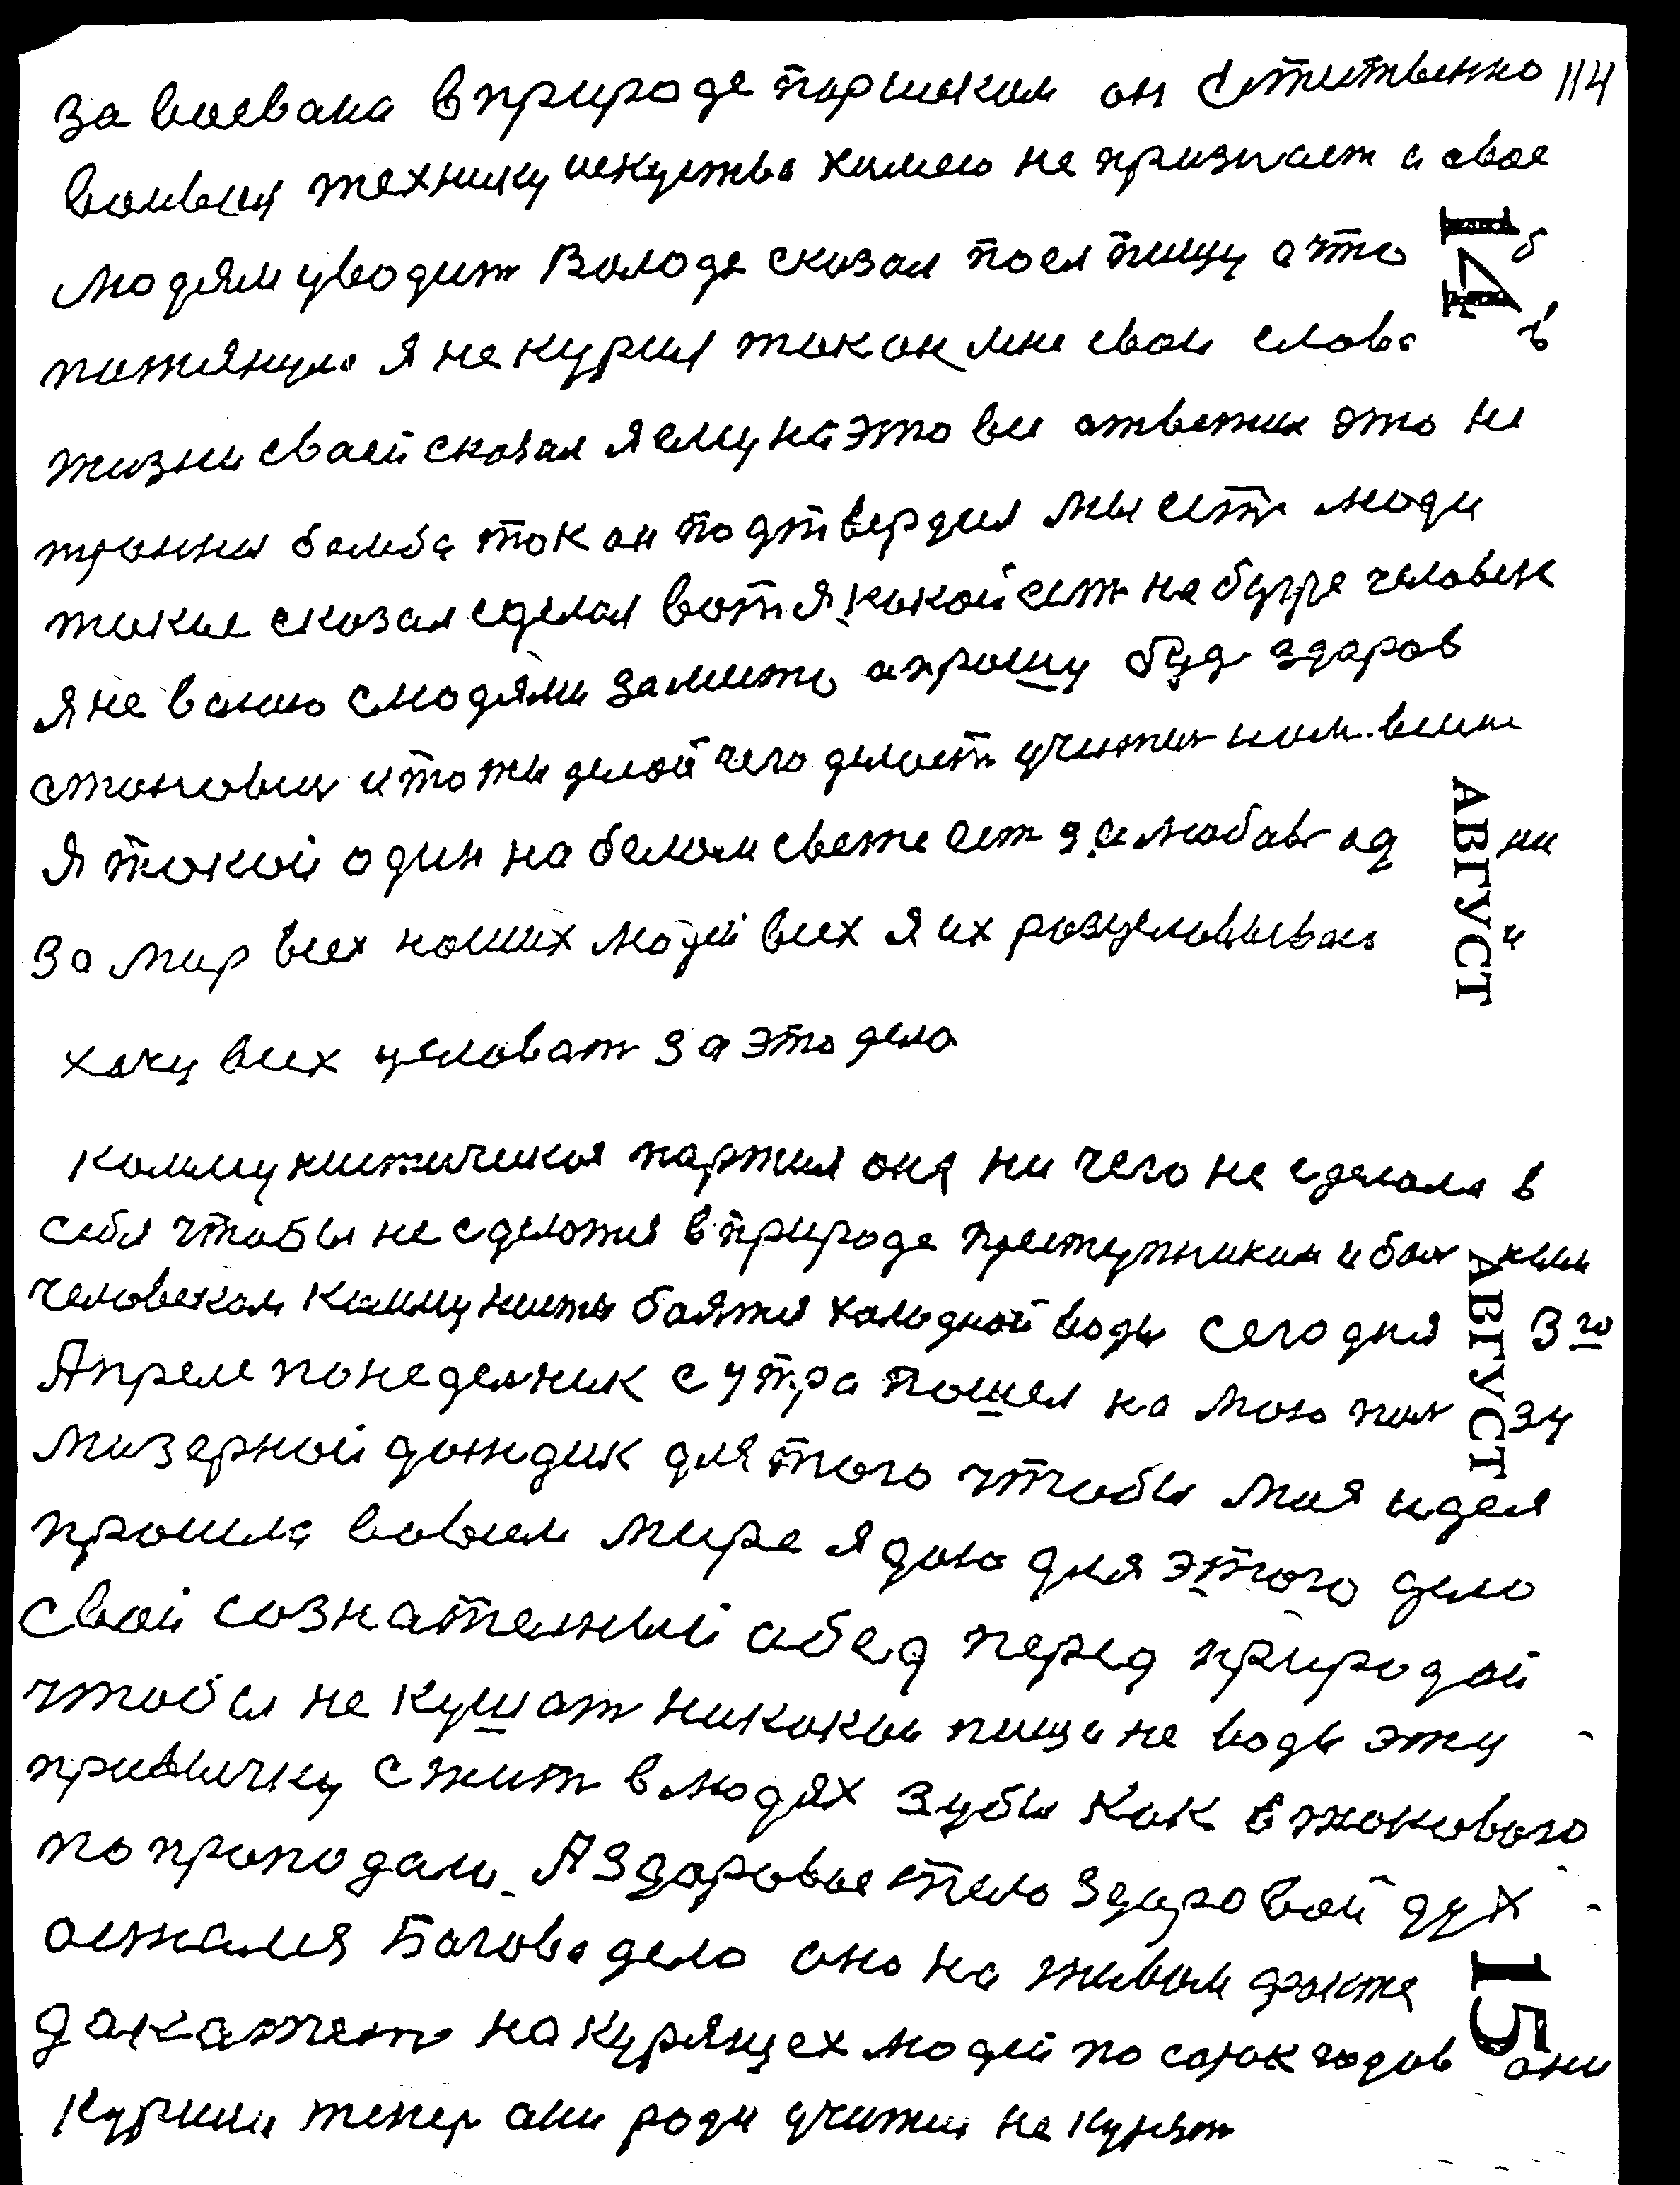 завоевана в природе паршоком он еститвенно 114
воивыя технику искуства химею не признает а свое
людям уводит Валодя сказал поел пищу а что б
14
потянула я не курил так он мне свои слова в
жизни своей сказал я ему на это ви ответил это не
тронния бомба так он подтвердил мы ест люди
такие сказал сделал вот я какой ест на бугре человек
я не воюю слюдями за место а прошу буд здаров
становис и то ты делай чего делает учител наш. всиж
я такой один на белом свете ест за любов од ни
АВГУСТ
за мир всех наших людей всех я их розцеловываю и
хачу всех целоват за это дела
коммунистическая партия она ни чего не сделала в
себя чтобы не сделатся в природе преступником и бол ным
человеком коммунисты боятся холодной воды сегодня 3го
АВГУСТ
Апреле понеделник с утра пошел на мою пол зу
мизерной дождик для того чтобы моя идея
прошла вовсем мире я даю для этого дело
свой сознателный обед перед природой
чтобы не кушат никакои пищи не воды эту
привычку сжит в людях зубы как в токового
попропадали. А здоровые тело здаровой дух
остался Богова дело оно на живом факте
15
дакажет на курящех людей по сорок годов они
курили тепер они ради учител не курят